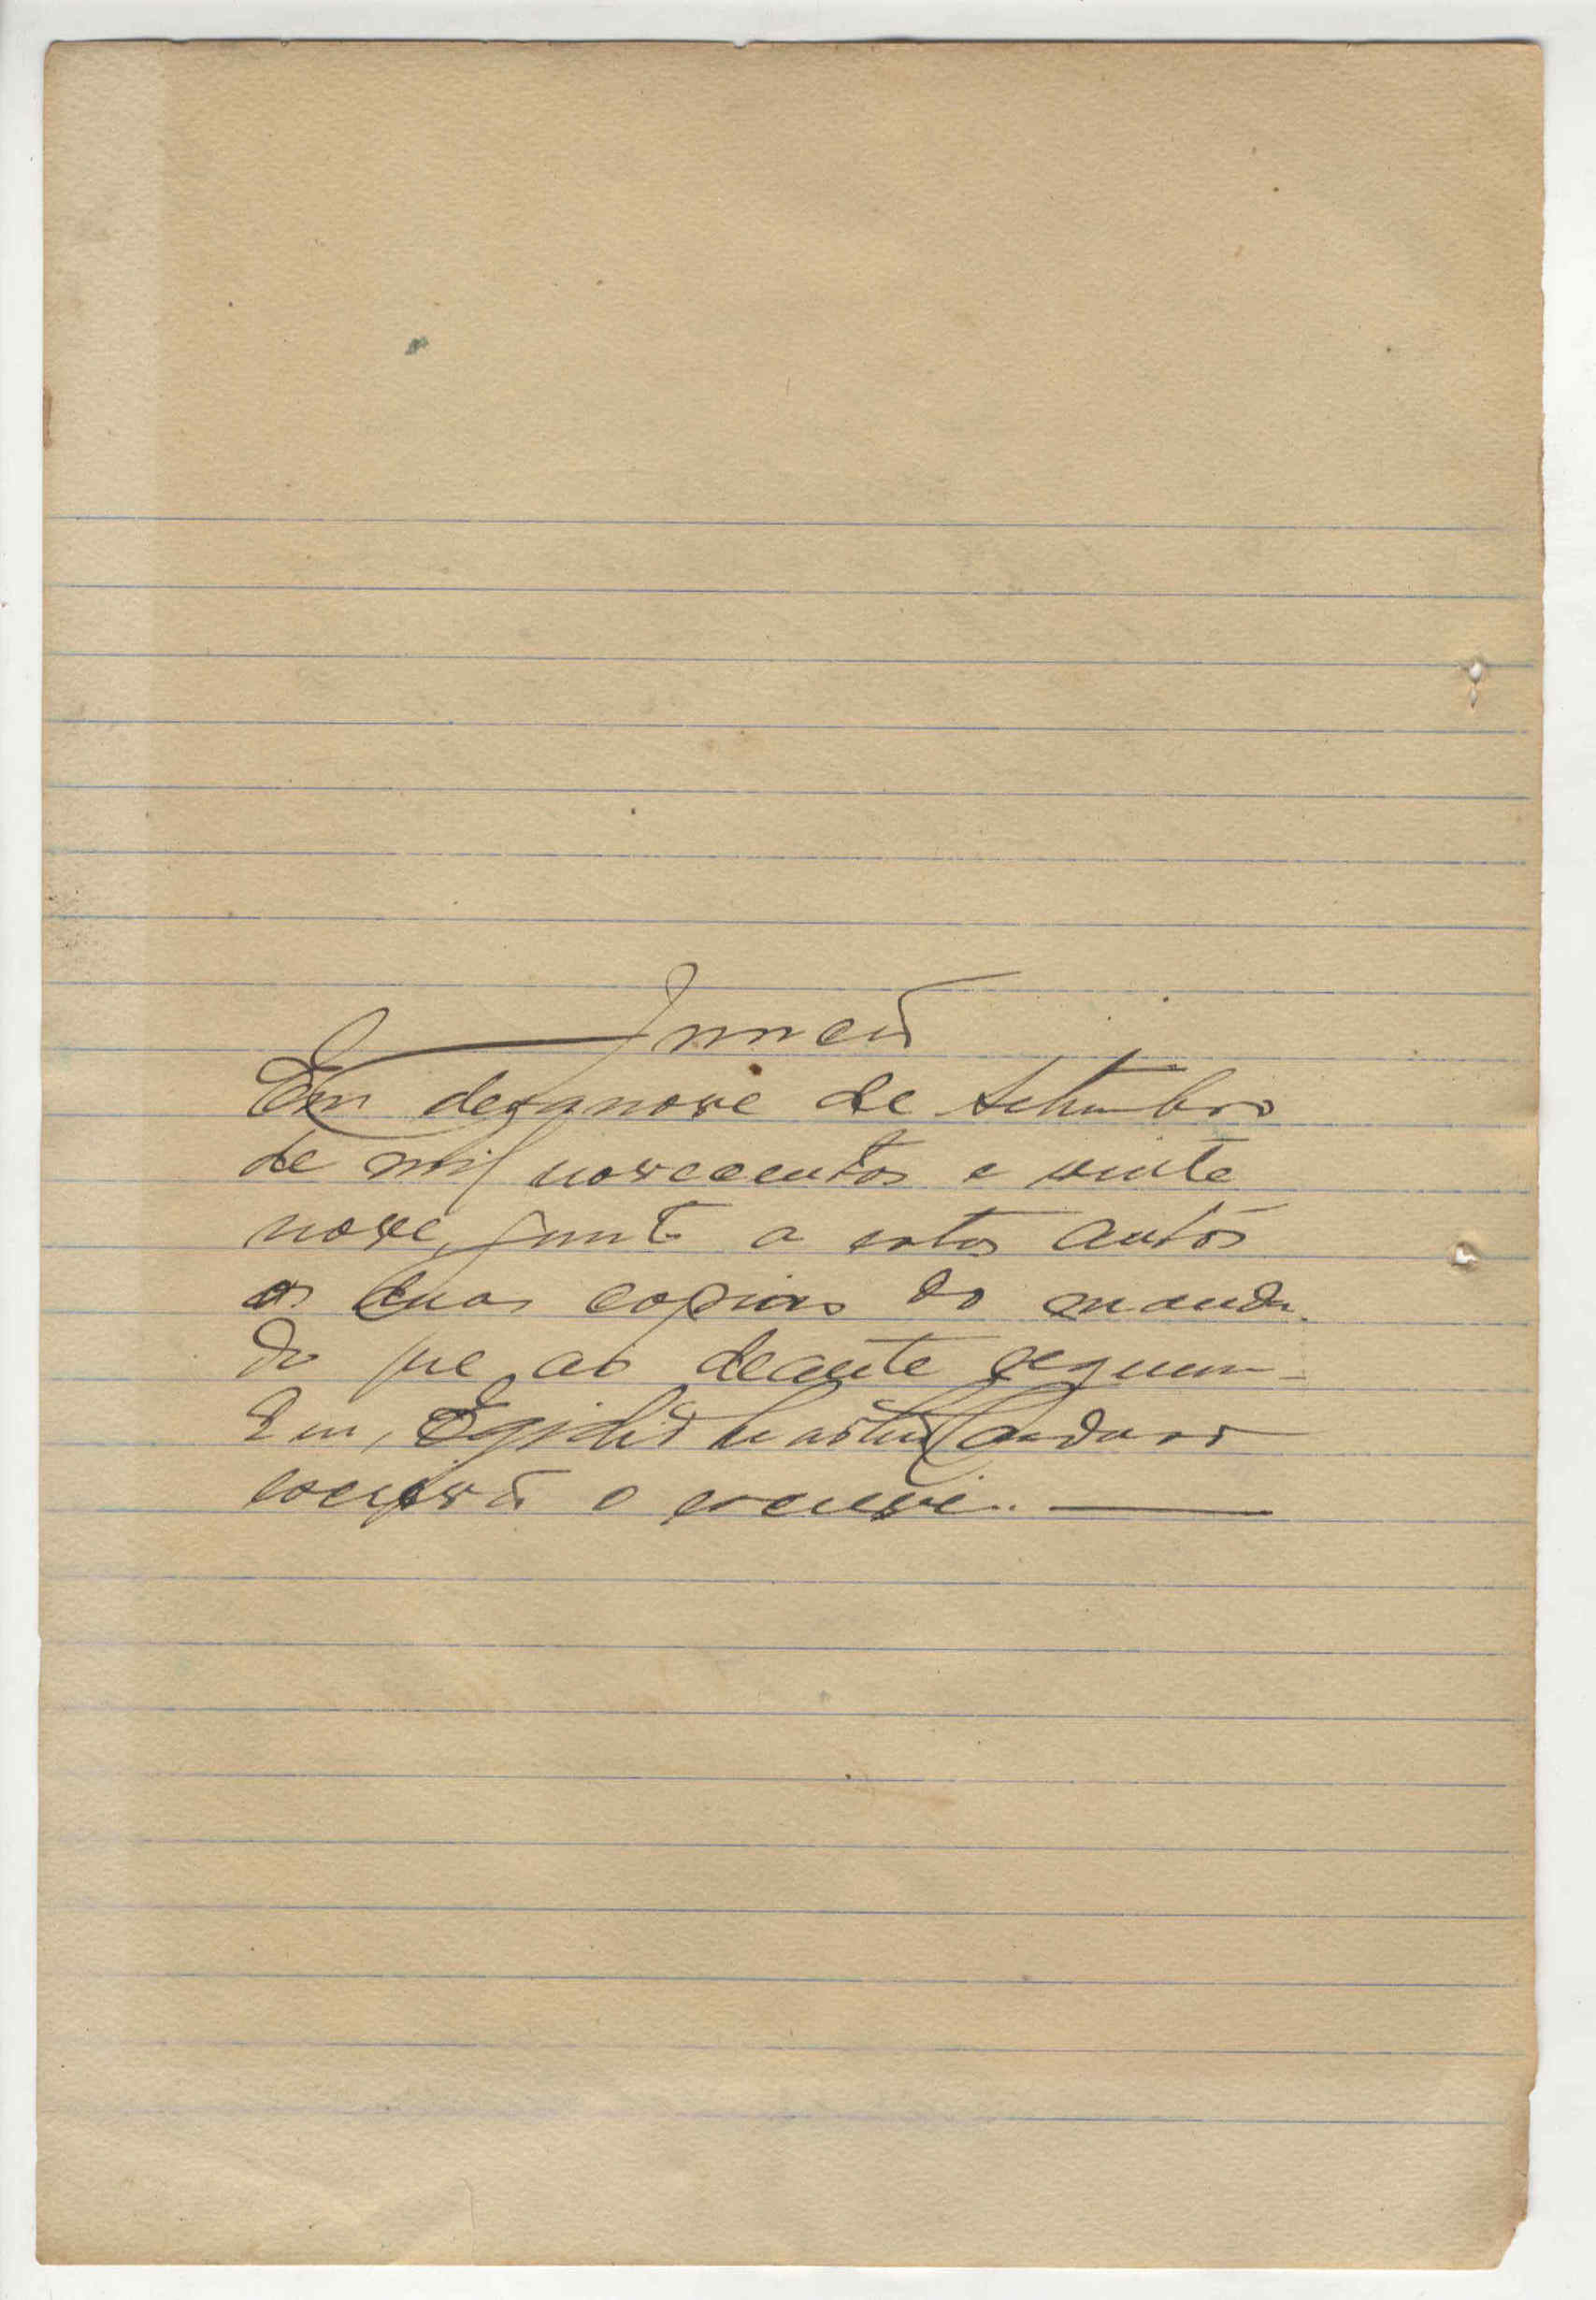 Juncção
Em dezanove de Setembro
de mil novecentos e vinte
nove, junto a estes autos
as duas copias do manda-
do que ao deante seguem.
Eu, Egidio Martins
escrivão o escrevi.